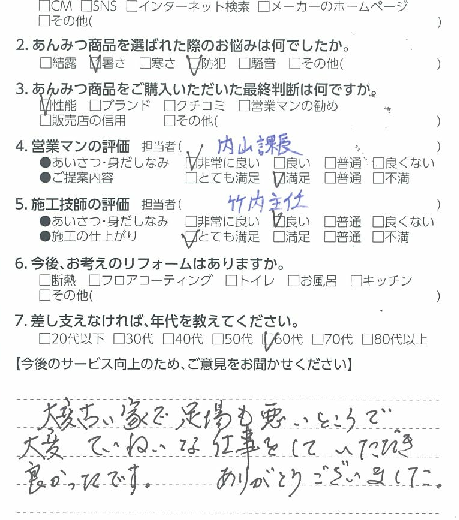 □CM □SNS □インターネット検索 □メーカーのホームページ
□その他( )
2. あんみつ商品を選ばれた際のお悩みは何でしたか。
□結露 ☑暑さ □寒さ ☑防犯 □騒音 □その他( )
3. あんみつ商品をご購入いただいた最終判断は何ですか。
☑性能 □ブランド □クチコミ □営業マンの勧め
□販売店の信用 □その他( )
4. 営業マンの評価 担当者( 内山課長 )
●あいさつ・身だしなみ ☑非常に良い □良い □普通 □良くない
●ご提案内容 □とても満足 ☑満足 □普通 □不満
5. 施工技師の評価 担当者( 竹内主任 )
●あいさつ・身だしなみ □非常に良い ☑良い □普通 □良くない
●施工の仕上がり ☑とても満足 □満足 □普通 □不満
6. 今後、お考えのリフォームはありますか。
□断熱 □フロアコーティング □トイレ □お風呂 □キッチン
□その他( )
7. 差し支えなければ、年代を教えてください。
□20代以下 □30代 □40代 □50代 ☑60代 □70代 □80代以上
【今後のサービス向上のため、ご意見をお聞かせください】
大変古い家で足場も悪いところで
大変ていねいな仕事をしていただき
良かったです。 ありがとうございました。